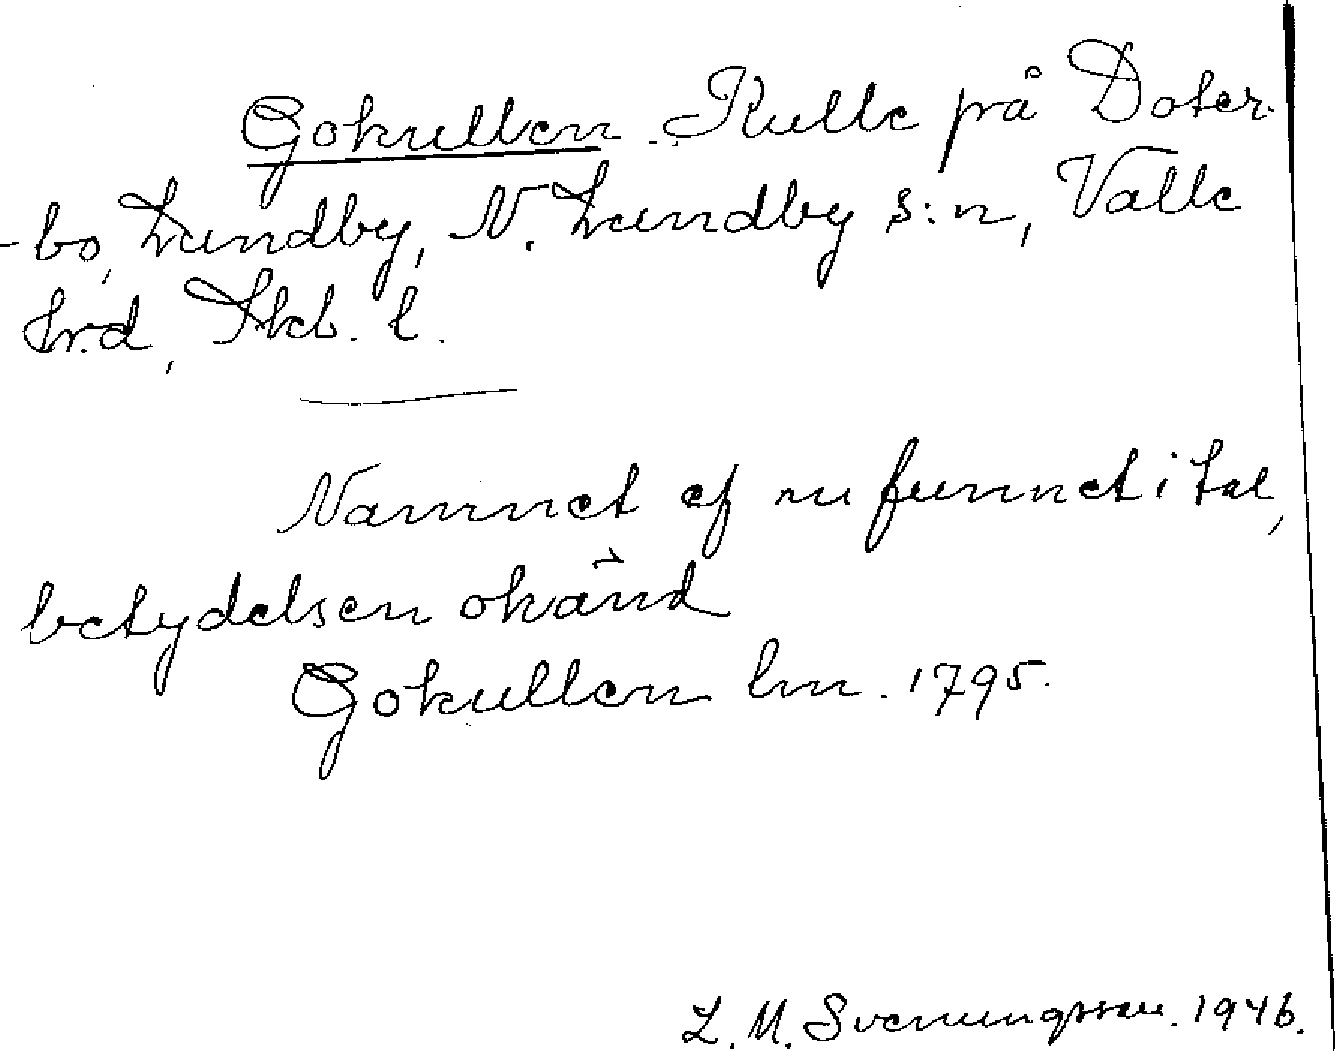 Gokullen. Kulle på Doter-
-bo, Lundby, N. Lundby s:n, Valle
hrd, Skb. l.
Namnet ej nu funnet i tal,
betydelsen okänd
Gokullen lm. 1795.
L. M. Svenungsson. 1946.